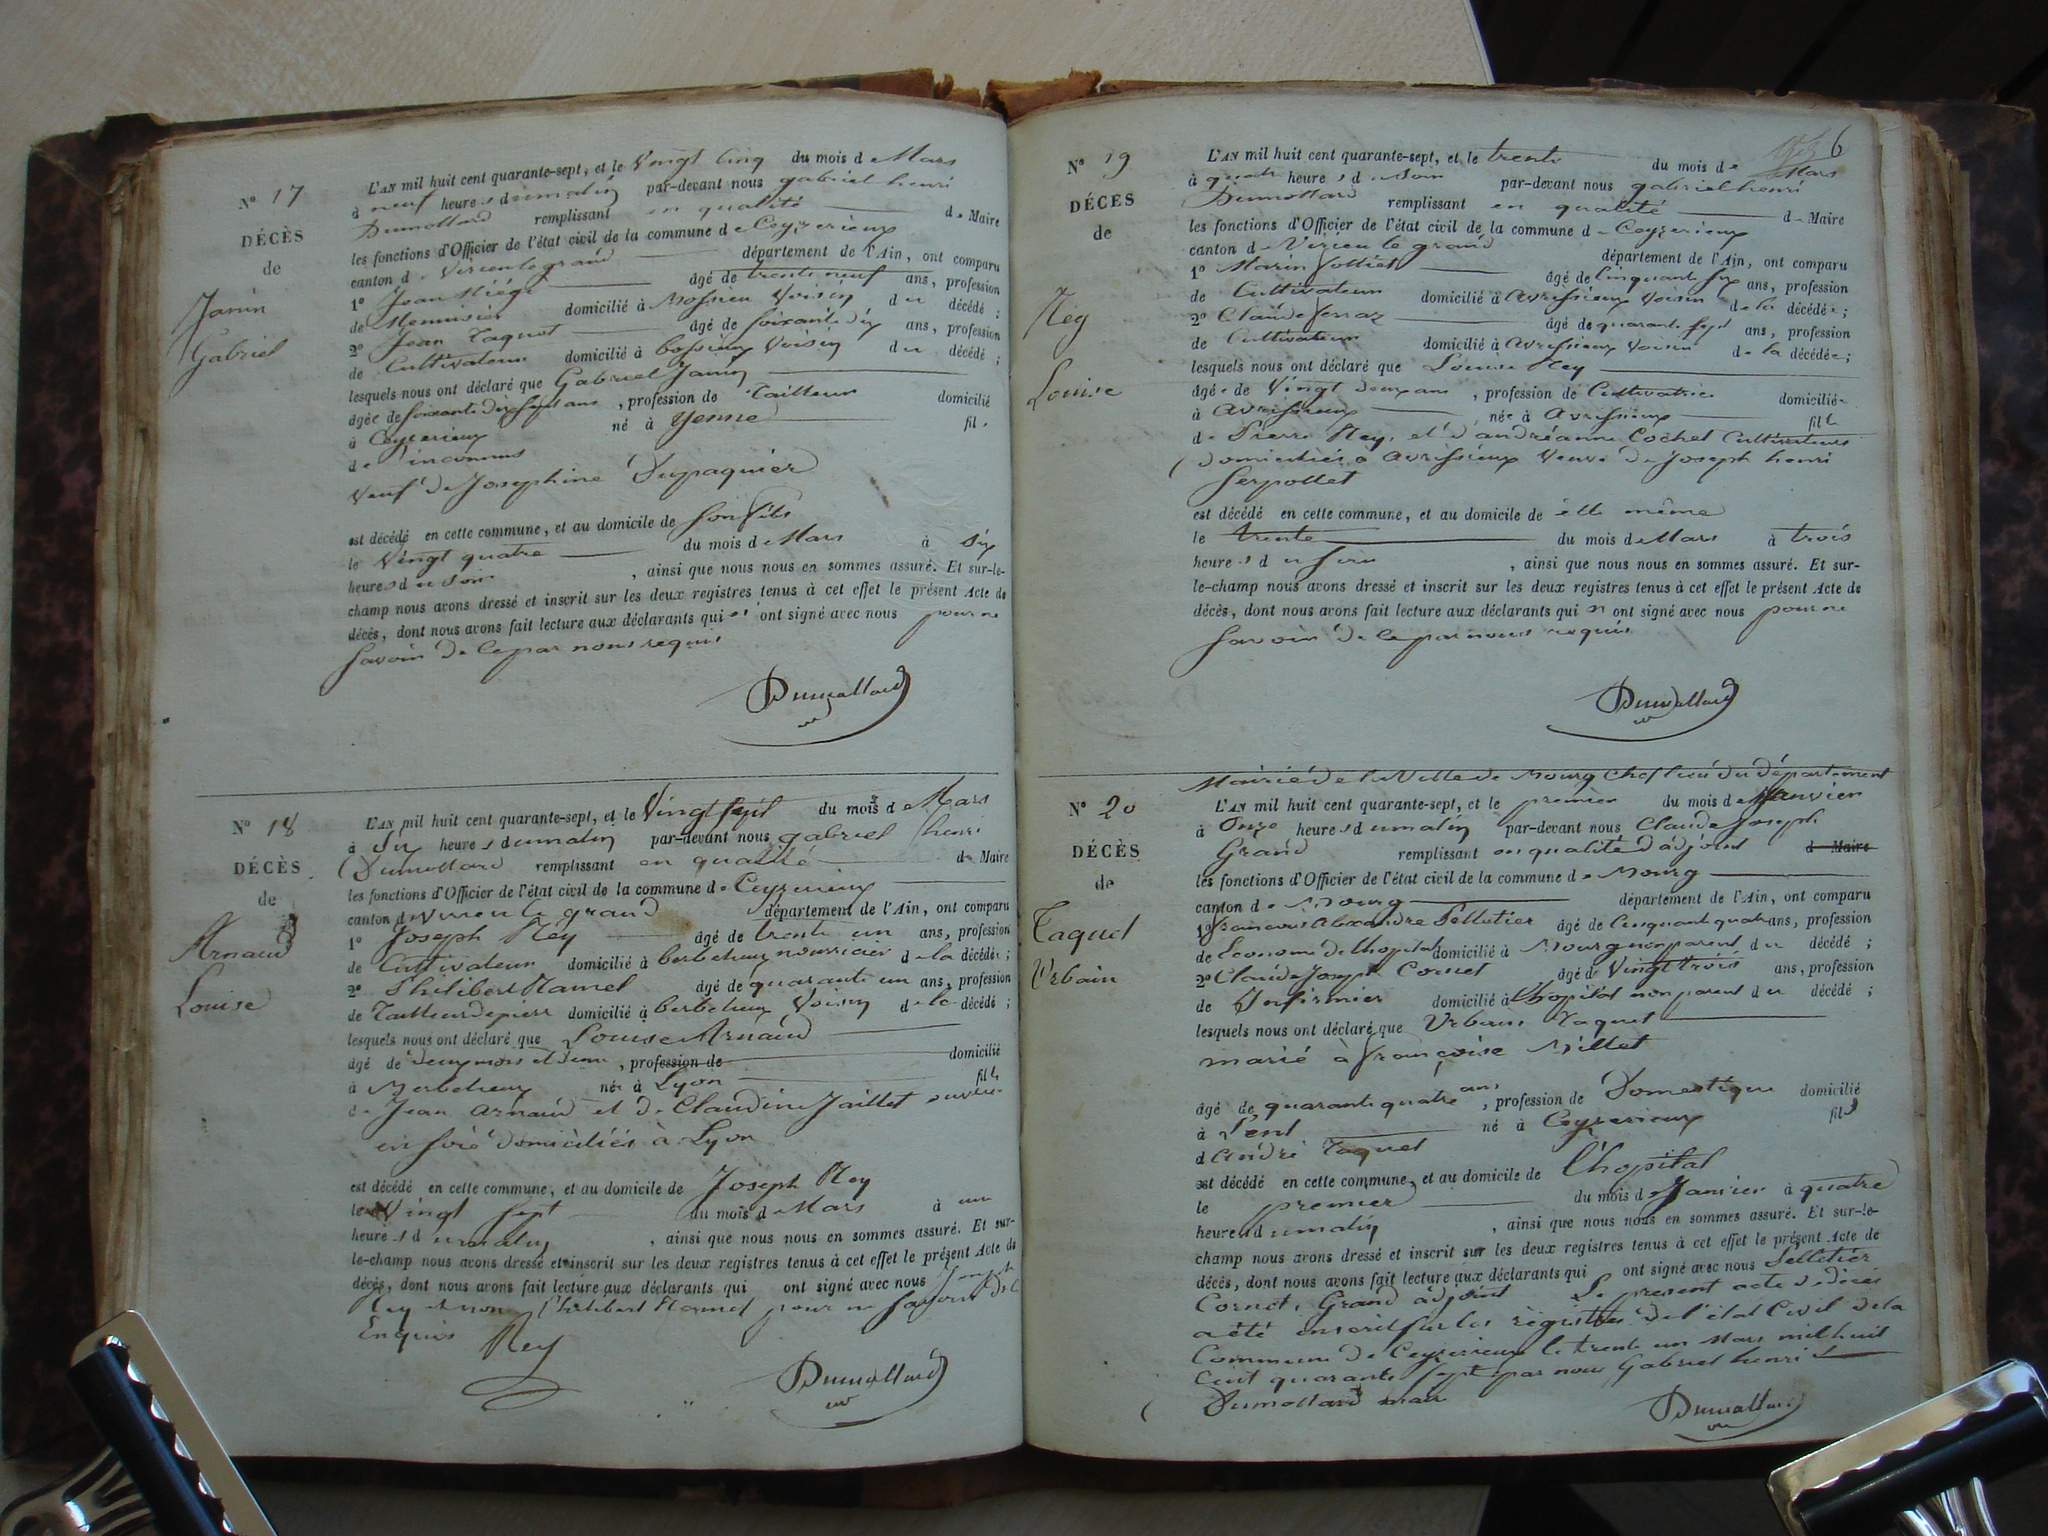 N° 17
DÉCÈS
de
Janin
Gabriel
L'AN mil huit cent quarante-sept, et le Vingt cinq du mois de Mars
à neuf heures du matin par-devant nous gabriel henri
Dumollard remplissant en qualité de Maire
les fonctions d'Officier de l'état civil de la commune de Ceyzerieux
canton de Virieu le grand département de l'Ain, ont comparu
1° Jean âgé de trente neuf ans, profession
de Menuisier domicilié à Voisin du décédé ;
2° Jean Taquet âgé de soixante dix ans, profession
de Cultivateur domicilié à Voisin du décédé ;
lesquels nous ont déclaré que Gabriel Janin
âgé de soixante dix sept ans, profession de Tailleur domicilié
à Ceyzerieux né à Yenne fil
de inconnus
Veuf de Josephine Dupaquier
est décédé en cette commune, et au domicile de son fils
le Vingt quatre du mois de Mars à six
heures du soir, ainsi que nous nous en sommes assuré. Et sur-le-
champ nous avons dressé et inscrit sur les deux registres tenus à cet effet le présent Acte de
décès, dont nous avons fait lecture aux déclarants qui n'ont signé avec nous pour ne
savoir de ce par nous requis
Dumollard
N° 18
DÉCÈS
de
Arnaud
Louise
L'AN mil huit cent quarante-sept, et le Vingt sept du mois de Mars
à dix heures du matin par-devant nous gabriel henri
Dumollard remplissant en qualité de Maire
les fonctions d'Officier de l'état civil de la commune de Ceyzerieux
canton de Virieu le grand département de l'Ain, ont comparu
1° Joseph Rey âgé de trente un ans, profession
de Cultivateur domicilié à nourricier de la décédée ;
2° Philibert Hamel âgé de quarante un ans, profession
de Tailleur de pierre domicilié à Voisin de la décédé ;
lesquels nous ont déclaré que Louise Arnaud
âgé de deux mois et demi, profession de domicilié
à née à Lyon fille
de Jean Arnaud et de Claudine Jaillet ouvriers
en soie domiciliés à Lyon
est décédé en cette commune, et au domicile de Joseph Rey
le Vingt sept du mois de Mars à une
heures du matin, ainsi que nous nous en sommes assuré. Et sur-
le-champ nous avons dressé et inscrit sur les deux registres tenus à cet effet le présent Acte de
décès, dont nous avons fait lecture aux déclarants qui ont signé avec nous Joseph
Rey et non Philibert Hamel pour ne savoir de ce
Enquis
Rey
Dumollard
6
N° 19
DÉCÈS
de
Rey
Louise
L'AN mil huit cent quarante-sept, et le trente du mois de Mars
à quatre heures du soir par-devant nous gabriel henri
Dumollard remplissant en qualité de Maire
les fonctions d'Officier de l'état civil de la commune de Ceyzerieux
canton de Virieu le grand département de l'Ain, ont comparu
1° Marin Jolliet âgé de Cinquante six ans, profession
de Cultivateur domicilié à Avrissieux Voisin de la décédée ;
2° Claude Ferraz âgé de quarante sept ans, profession
de Cultivateur domicilié à Avrissieux Voisin de la décédée ;
lesquels nous ont déclaré que Louise Rey
âgée de Vingt deux ans, profession de Cultivatrice domiciliée
à Avrissieux née à Avrissieux fille
de Pierre Rey, et d'andréanne Cochet Cultivateurs
domiciliés à Avrissieux Veuve de Joseph henri
Serpollet
est décédé en cette commune, et au domicile de elle même
le trente du mois de Mars à trois
heures du soir, ainsi que nous nous en sommes assuré. Et sur-
le-champ nous avons dressé et inscrit sur les deux registres tenus à cet effet le présent Acte de
décès, dont nous avons fait lecture aux déclarants qui n'ont signé avec nous pour ne
savoir de ce par nous requis
Dumollard
Mairie de la Ville de Bourg Chef lieu du département
N° 20
DÉCÈS
de
Taquet
Urbain
L'AN mil huit cent quarante-sept, et le premier du mois de Janvier
à Onze heures du matin par-devant nous Claude Joseph
Grand remplissant en qualité d'adjoint de Maire
les fonctions d'Officier de l'état civil de la commune de Bourg
canton de Bourg département de l'Ain, ont comparu
1° francois Alexandre Pelletier âgé de Cinquante quatre ans, profession
de Econome de l'hopital domicilié à Bourg non parent du décédé ;
2° Claude Joseph Cornet âgé de Vingt trois ans, profession
de Infirmier domicilié à l'hopital non parent du décédé ;
lesquels nous ont déclaré que Urbain Taquet
marié à françoise Millet
âgé de quarante quatre ans, profession de Domestique domicilié
à Lent né à Ceyzerieux fils
d'André Taquet
est décédé en cette commune, et au domicile de l'hopital
le premier du mois de Janvier à quatre
heures du matin, ainsi que nous nous en sommes assuré. Et sur-le-
champ nous avons dressé et inscrit sur les deux registres tenus à cet effet le présent Acte de
décès, dont nous avons fait lecture aux déclarants qui ont signé avec nous Pelletier
Cornet, Grand adjoint Le présent acte de décès
a été inscrit sur les régistres de l'état Civil de la
Commune de Ceyzerieux le trente un Mars mil huit
cent quarante sept par nous Gabriel henri
Dumollard maire
Dumollard